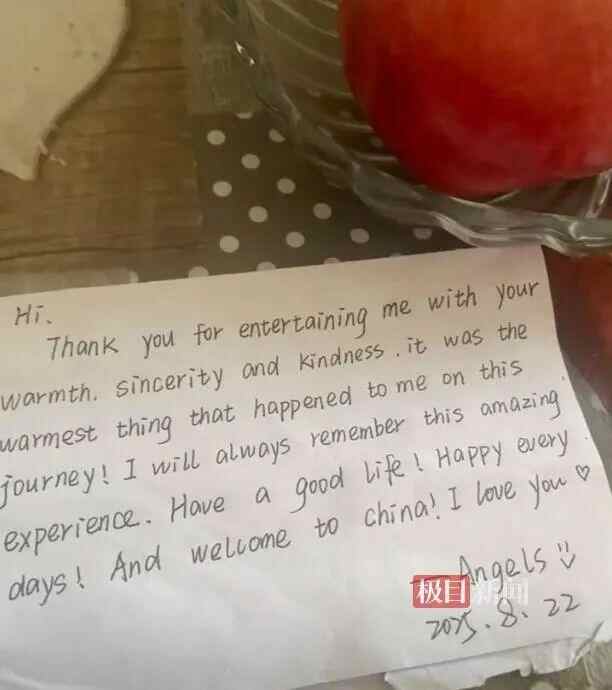 Hi.
Thank you for entertaining me with your
warmth. sincerity and kindness. it was the
warmest thing that happened to me on this
journey! I will always remember this amazing
experience. Have a good life! Happy every
days! And welcome to china! I love you ♡
Angels
极目新闻
2025.8.22